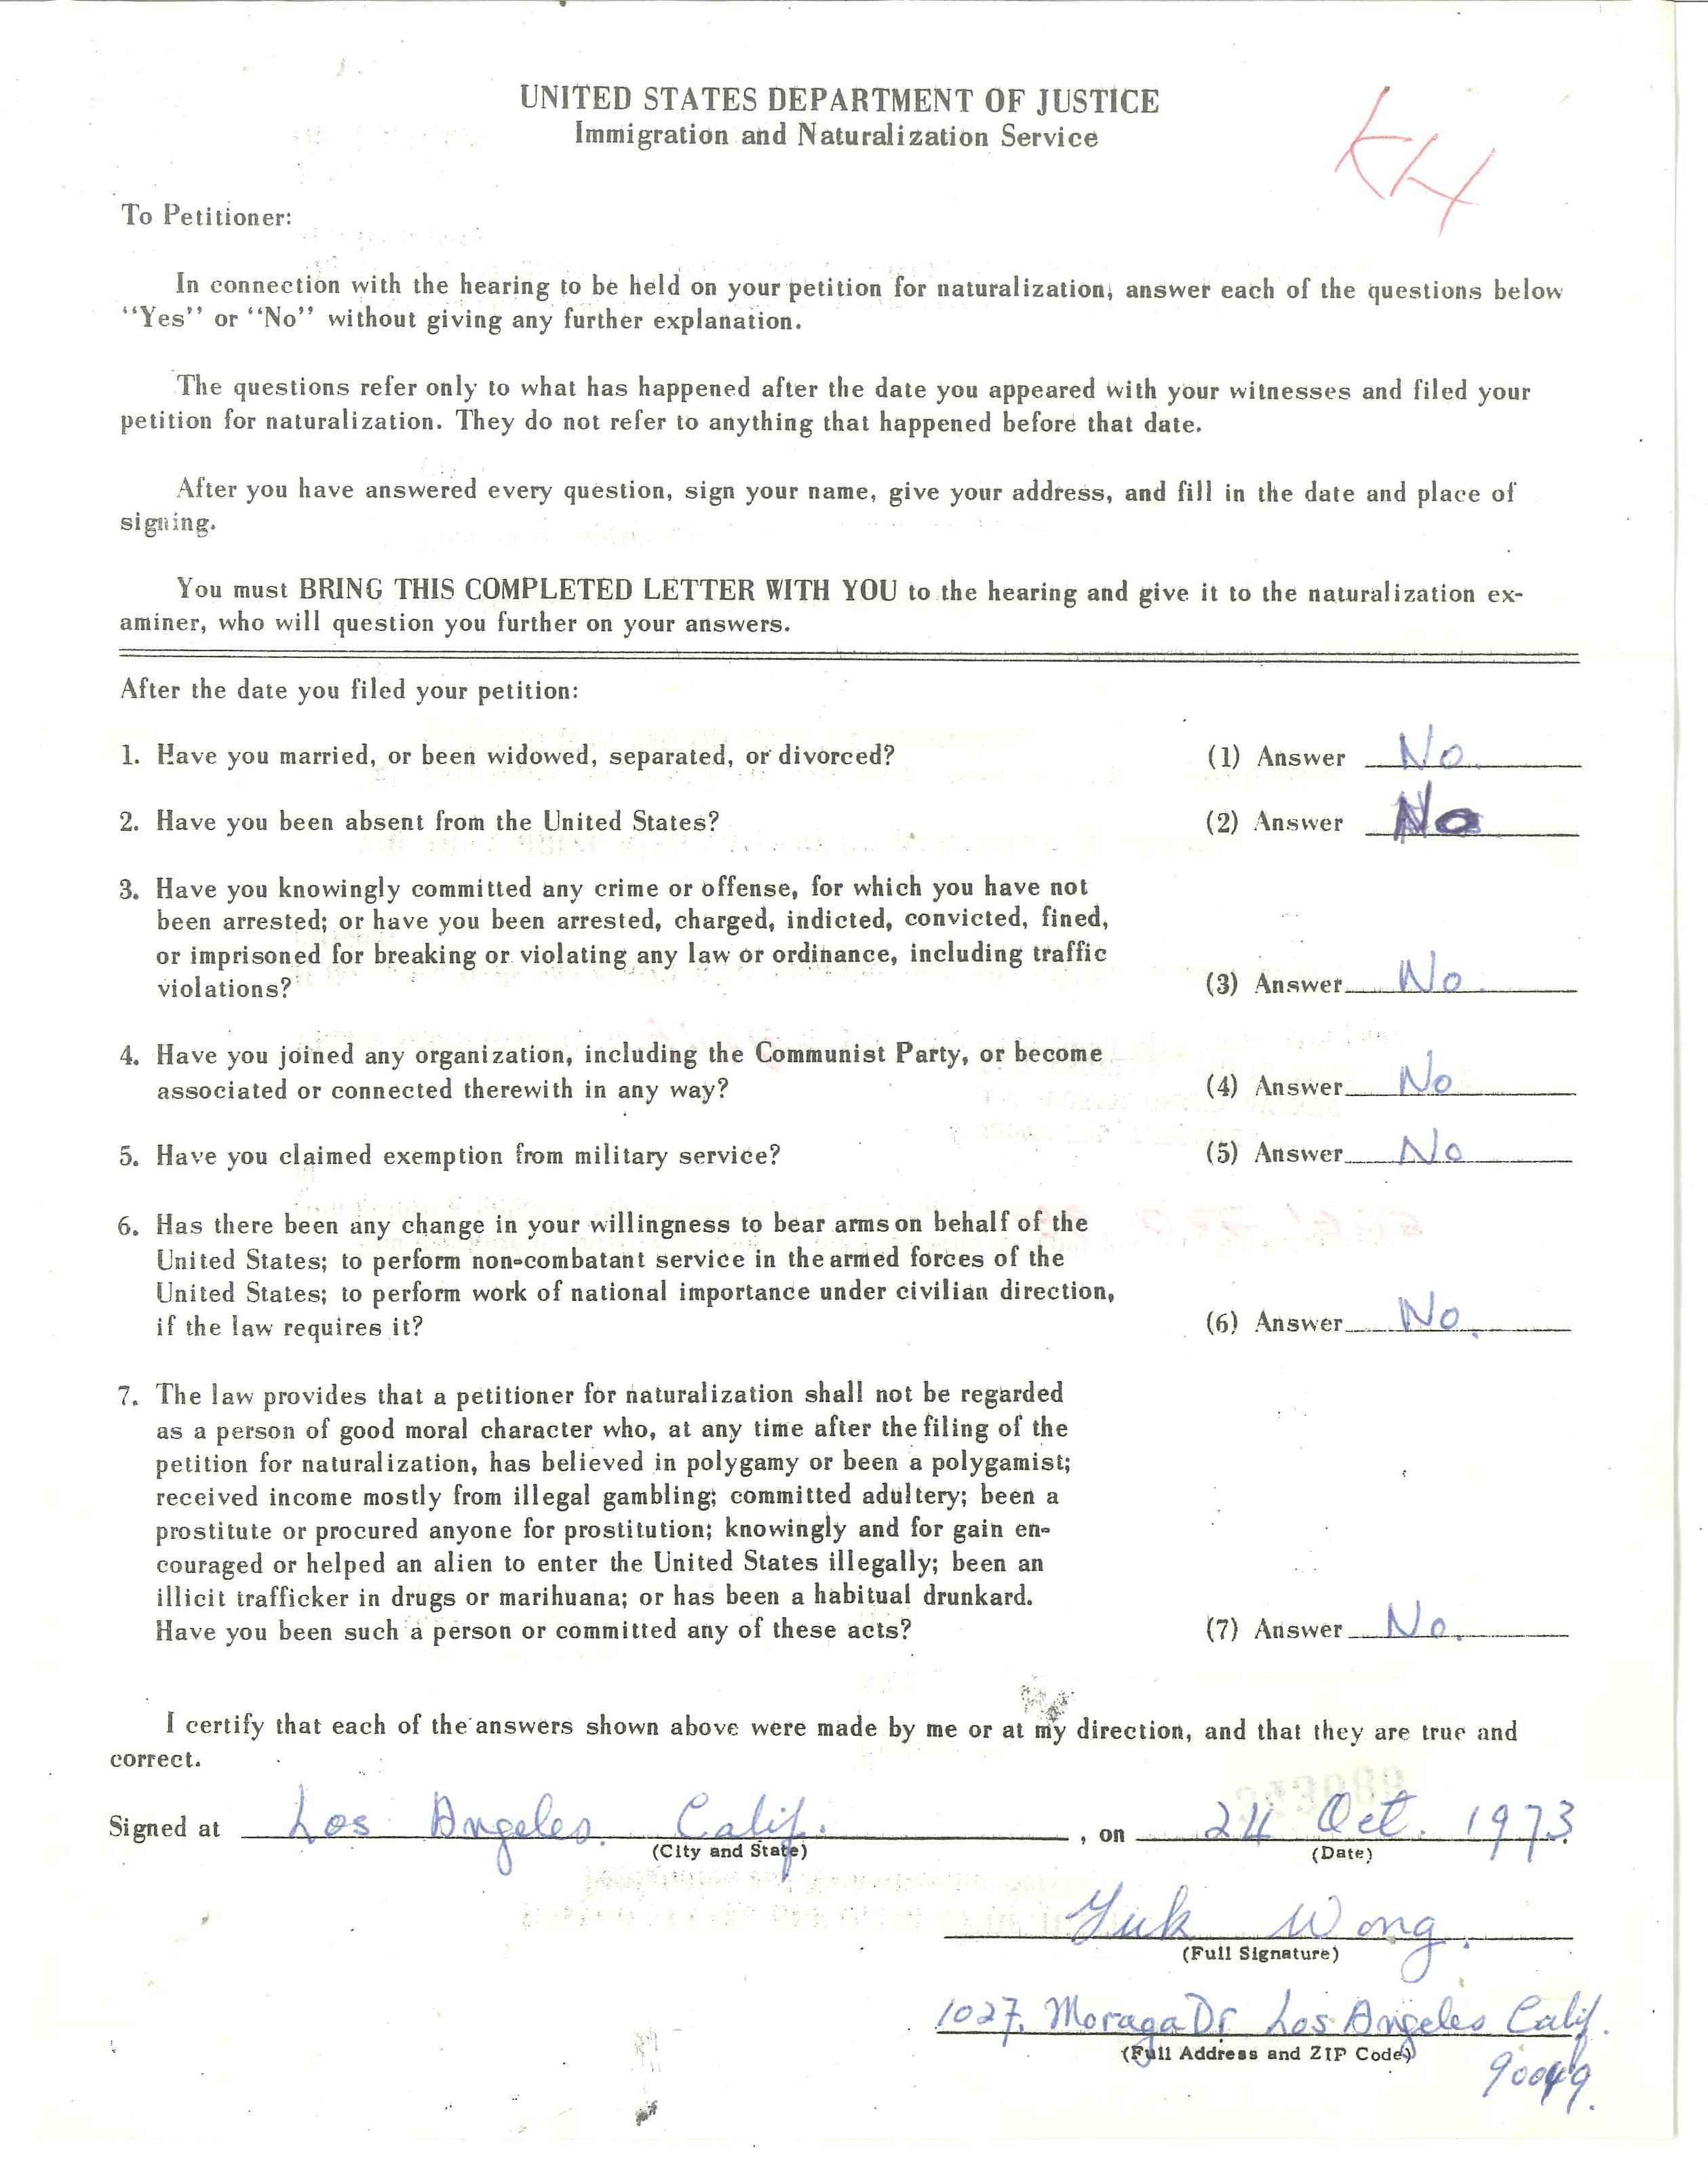 UNITED STATES DEPARTMENT OF JUSTICE
Immigration and Naturalization Service
KH
To Petitioner:
In connection with the hearing to be held on your petition for naturalization, answer each of the questions below
"Yes" or "No" without giving any further explanation.
The questions refer only to what has happened after the date you appeared with your witnesses and filed your
petition for naturalization. They do not refer to anything that happened before that date.
After you have answered every question, sign your name, give your address, and fill in the date and place of
signing.
You must BRING THIS COMPLETED LETTER WITH YOU to the hearing and give it to the naturalization ex-
aminer, who will question you further on your answers.
After the date you filed your petition:
1. Have you married, or been widowed, separated, or divorced? (1) Answer No
2. Have you been absent from the United States? (2) Answer No
3. Have you knowingly committed any crime or offense, for which you have not
been arrested; or have you been arrested, charged, indicted, convicted, fined,
or imprisoned for breaking or violating any law or ordinance, including traffic
violations? (3) Answer No
4. Have you joined any organization, including the Communist Party, or become
associated or connected therewith in any way? (4) Answer No
5. Have you claimed exemption from military service? (5) Answer No
6. Has there been any change in your willingness to bear arms on behalf of the
United States; to perform non-combatant service in the armed forces of the
United States; to perform work of national importance under civilian direction,
if the law requires it? (6) Answer No.
7. The law provides that a petitioner for naturalization shall not be regarded
as a person of good moral character who, at any time after the filing of the
petition for naturalization, has believed in polygamy or been a polygamist;
received income mostly from illegal gambling; committed adultery; been a
prostitute or procured anyone for prostitution; knowingly and for gain en-
couraged or helped an alien to enter the United States illegally; been an
illicit trafficker in drugs or marihuana; or has been a habitual drunkard.
Have you been such a person or committed any of these acts? (7) Answer No.
I certify that each of the answers shown above were made by me or at my direction, and that they are true and
correct.
Signed at Los Angeles. Calif. , on 24 Oct. 1973
(City and State) (Date)
Yuk Wong.
(Full Signature)
1027. Moraga Dr Los Angeles Calif.
(Full Address and ZIP Code)
90049.